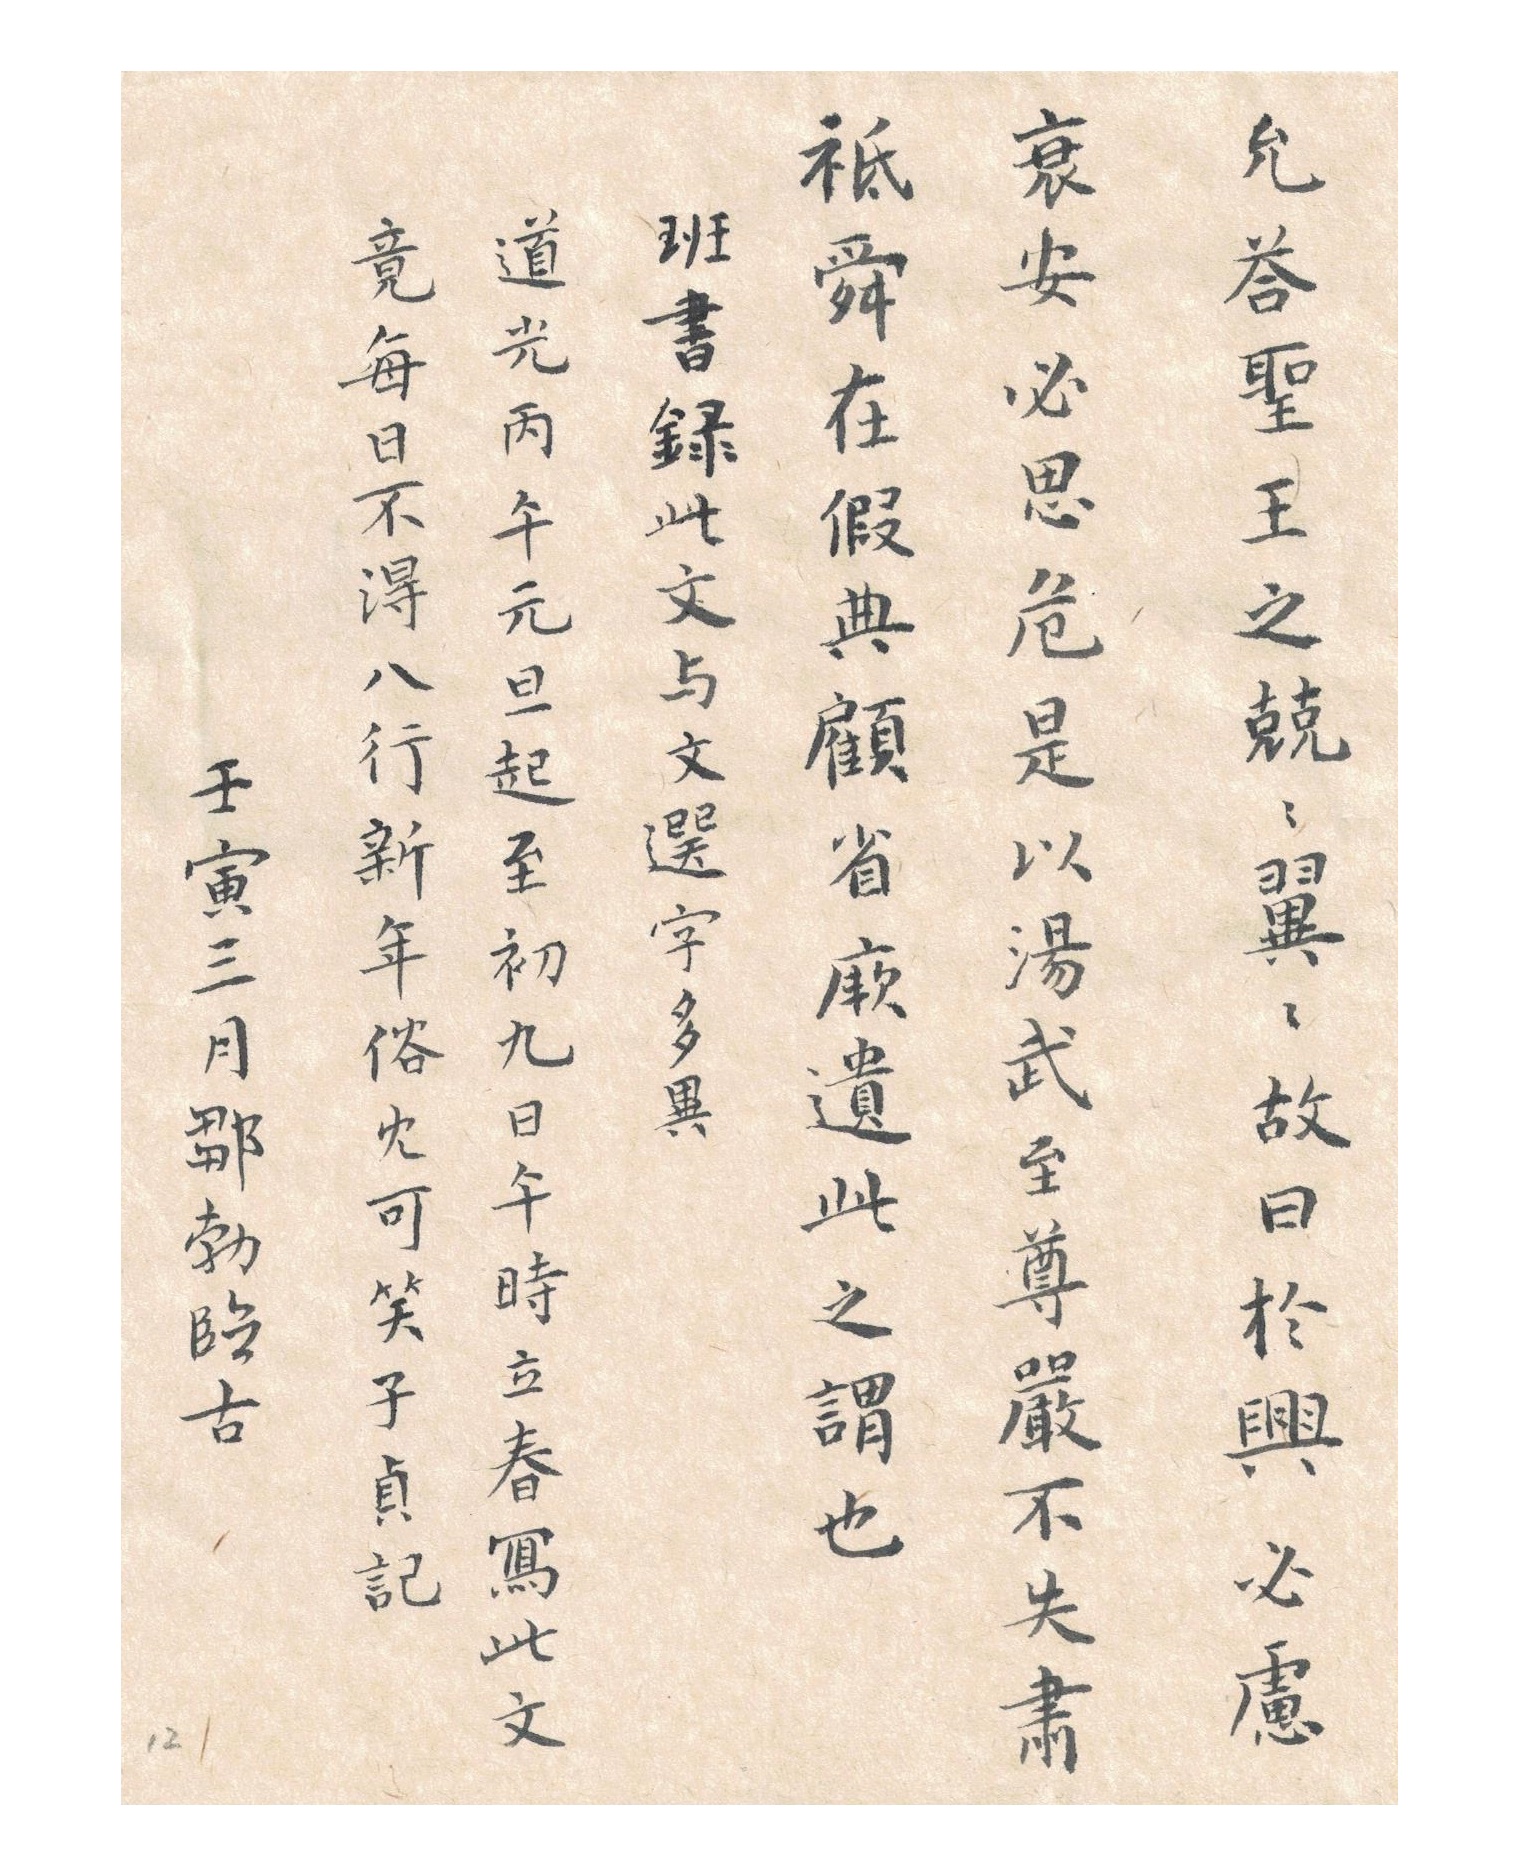 允荅聖王之兢〻翼〻故曰於興必慮
衰安必思危是以湯武至尊嚴不失肅
祗舜在假典顧省厥遺此之謂也
班書録此文与文選字多異
道光丙午元旦起至初九日午時立春寫此文
竟每日不得八行新年俗冗可笑子貞記
壬寅三月鄒勃臨古
12